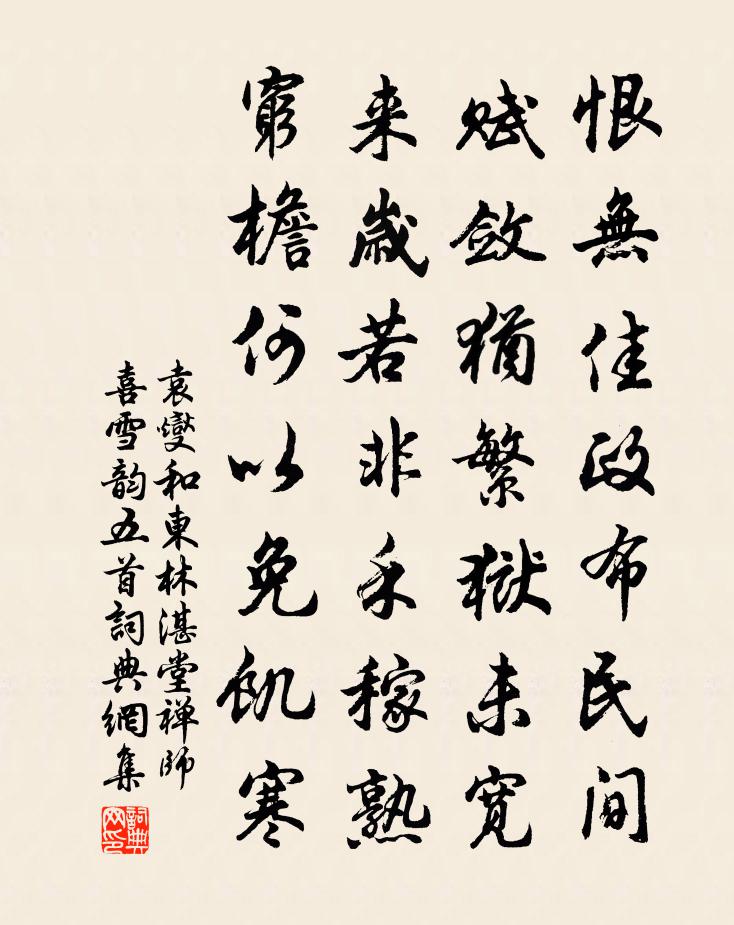 恨無佳政布民間
賦斂猶繁獄未寬
来歲若非禾稼熟
窮檐何以免飢寒
袁燮和東林湛堂禅師
喜雪韵五首詞典網集
詞典
网印